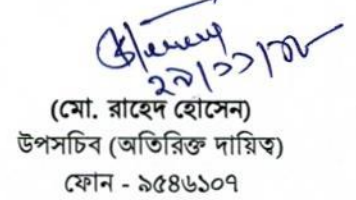 ২৯/১১/২৮
(মো. রাহেদ হোসেন)
উপসচিব (অতিরিক্ত দায়িত্ব)
ফোন - ৯৫৪৬১০৭